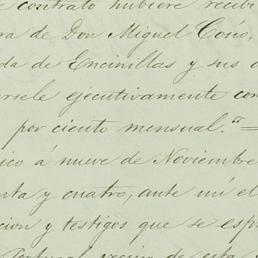 e contrato hubiere recibi
ra de Don Miguel Cosío,
da de Encinillas y sus
arsele ejecutivamente con
por ciento mensual."=
ico á nueve de Noviembre
enta y cuatro, ante mí el
cion y testigos que se esp
vecino de esta